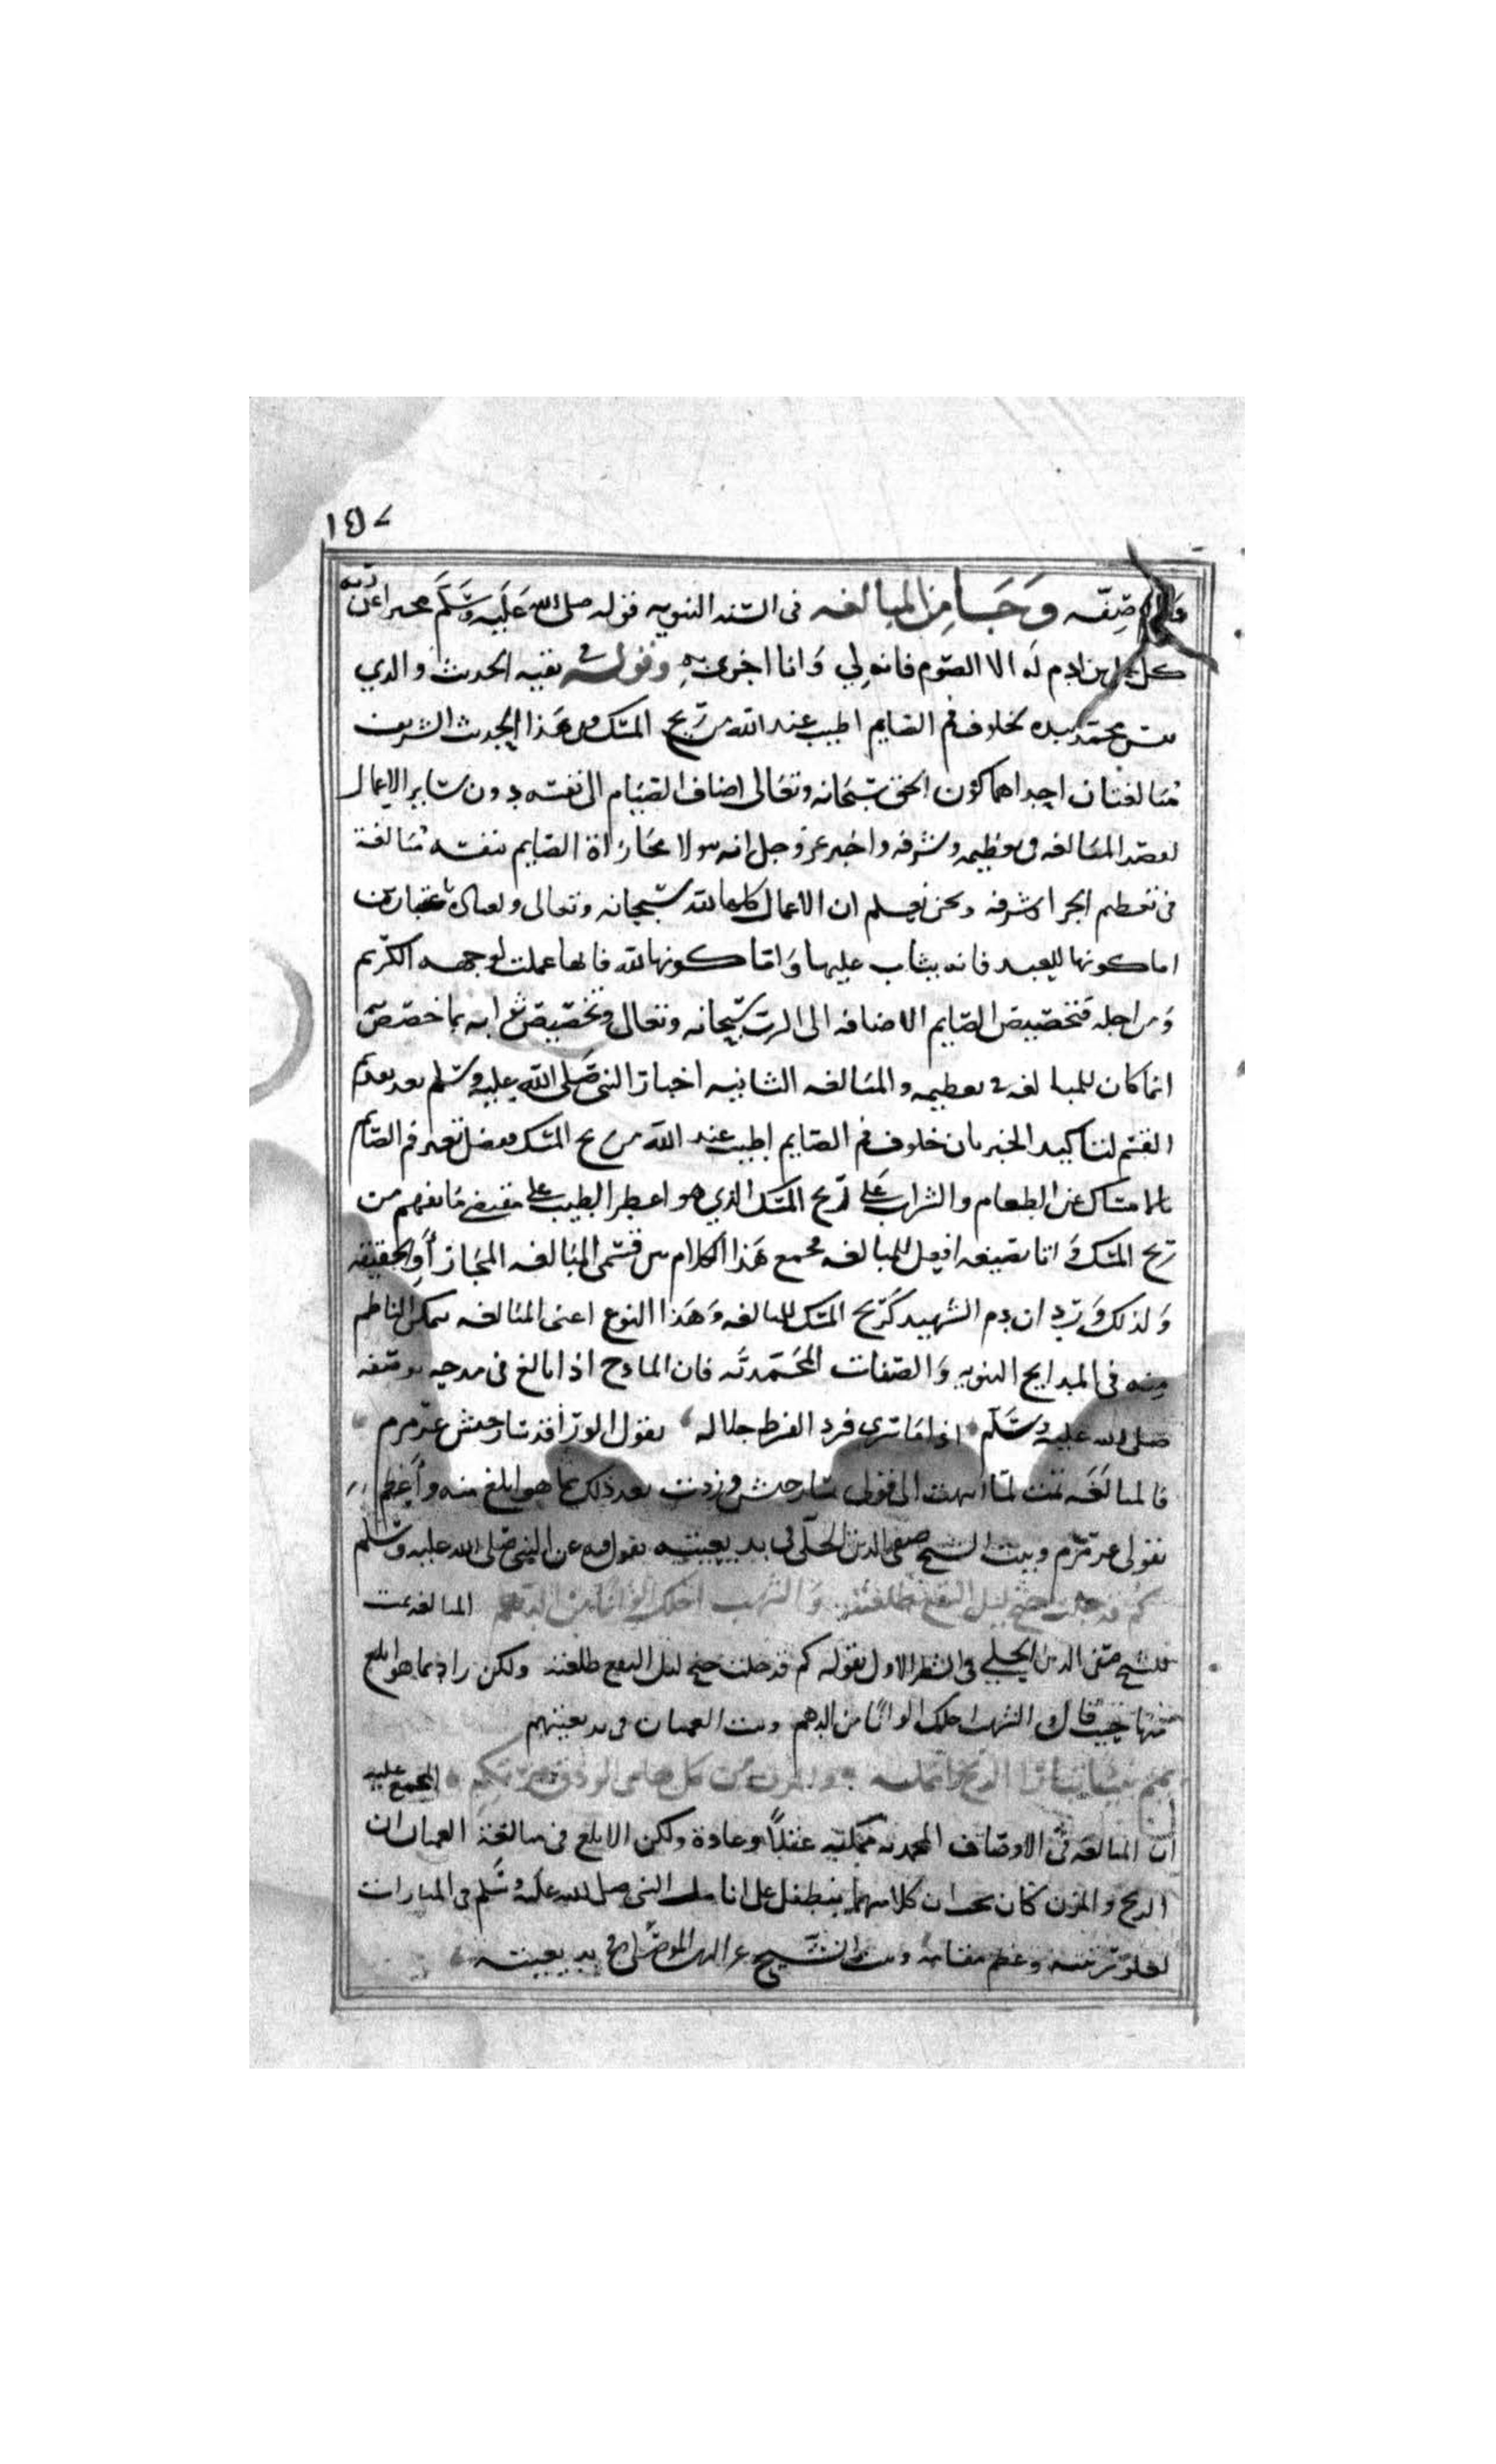 ١٥٧
وصفه وَجَا من المبالغه فى السنه النبويه قوله صلى الله عَلَيه وَسَلَّمَ مخبرا عن ربه
كل عمل ابن ادم لَه الا الصّوم فانه لي وَانا اجزى به وقوله فى بقيه الحديث والدي
نفس محمد بيده لخلوف فم الصايم اطيب عند الله من ريح المسك وفى هَذا الحديث الشريف
مُبالغتان احداهما كون الحق سبحَانه وتعَالى اضاف الصيَام الى نفسه دون سَاير الاعمال
لقصد المبَالغه فى تعظيمه وشرفه واخبر عز وجل انه يتولا مجَازاة الصايم بنفسه مُبَالغة
فى تعظيم الجزا وشرفه ونحن نعلم ان الاعمال كلها لله سبحانه وتعالى ولعباده باعتبارين
اما كونها للعبد فانه يثاب عليها وَامّا كونها لله فانها عملت لوجهه الكريم
وَمن اجله فتخصيص الصّايم الاضافه الى الرب سبحانه وتعالى وتخصيص ثوابه بما خصص
انما كان للمبالغه فى تعظيمه والمبَالغه الثانيه اخبار النبى صَلى الله عليه وسَلم بعد تقديم
القسَم لتاكيد الخبر بان خلوف فم الصايم اطيب عند الله من ريح المسك ففضل تغير فم الصَايم
بالامسَاك عن الطعام والشراب عَلى ريح المسك الذي هو اعطر الطيب على مقتضى مَا يفهم من
ريح المسك وَاتا بصيغه افعل للمبالغه فجمع هَذا الكلام بين قسمى المبَالغه المجَاز أو الحقيقه
وَلذلك وَرَد ان دم الشهيد كَريح المسك للمبالغه وَهَذا النوع اعنى المبَالغه يمكن الناظم
منه فى المدايح النبويه وَالصّفات المُحَمَّديَّه فان المادح اذا بالغ فى مدحه بوصفه
صَلى الله عليه وسَلَّم فرد الفرط جلاله يقول الورا قد سَار جيش عرمرم
فالمبالغَه تمت لمّا انتهيت الى قولى سَار جيش وزدت بعد ذلك بما هو ابلغ منه وأعظم
بقولى عرمّرم وبيت الشيخ صفى الدين الحلّى فى بديعيته يقول فيه عن النبى صَلى الله عليه وسَلَّم
كم قد جلت جنح ليل النقع طلعته وَالشهب احلك الوانًا من الدهم المبالغه تمت
للشيخ صفى الدين الحلي فى الشطر الاول بقوله كم قد جلت جنح ليل النقع طلعته ولكن زاد بما هو ابلغ
منها حَيث قال والشهب احلك الوانًا من الدهم وبيت العميان فى بديعيتهم
المجمع عليه
ان المبالغه فى الاوصَاف المحمديه ممكنه عقلاً وعادة ولكن الابلغ فى مبالغة العميان ان
الريح والمزن كان يجب ان كلاهما يتطفل على انامل النبى صلى الله عَليه وسَلم فى المبارات
لعلو رتبته وعظم مقامه وبيت الشيخ عز الدين الموصلى فى بديعيته